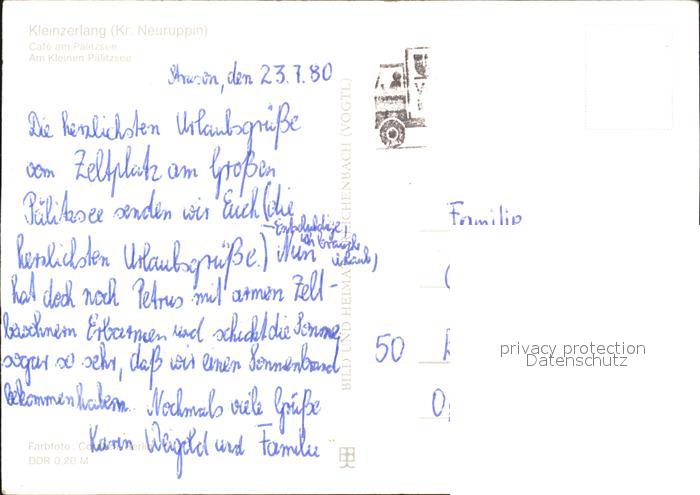 Kleinzerlang (Kr. Neuruppin)
Café am Pälitzsee
Am Kleinen Pälitzsee
den 23.7.80
Die herzlichsten Urlaubsgrüße
vom Zeltplatz am Großen
Pälitzsee senden wir Euch (die
Entschuldige,
ich brauche
Urlaub)
herzlichsten Urlaubsgrüße.) Nun
hat doch noch Petrus mit armen Zelt-
bewohnern Erbarmen und schickt die Sonne,
sogar so sehr, daß wir einen Sonnenbrand
bekommen haben. Nochmals viele Grüße
Karin Weigold und Familie
Farbfoto:
DDR 0,20 M
BILD UND HEIMAT REICHENBACH (VOGTL)
Familie
50
privacy protection
Datenschutz